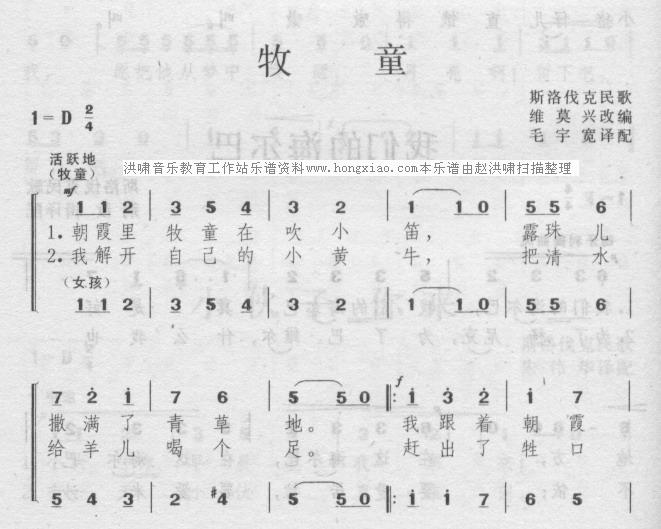 牧童
斯洛伐克民歌
维莫兴改编
毛宇宽译配
1=D 2/4
活跃地
(牧童)
洪啸音乐教育工作站乐谱资料www.hongxiao.com本乐谱由赵洪啸扫描整理
1 1 2 | 3 5 4 | 3 2 | 1 1 0 | 5 5 6
1.朝霞里 牧童在 吹小 笛, 露珠儿
2.我解开 自己的 小黄 牛, 把清水
(女孩)
1 1 2 | 3 5 4 | 3 2 | 1 1 0 | 5 5 6
7 2 1 | 7 6 | 5 5 0 f 1 3 2 | 1 6
撒满了 青草 地。 我跟着 朝霞
给羊儿 喝个 足。 赶出了 牲口
5 4 3 | 2 #4 | 5 5 0 1 1 7 | 6 5